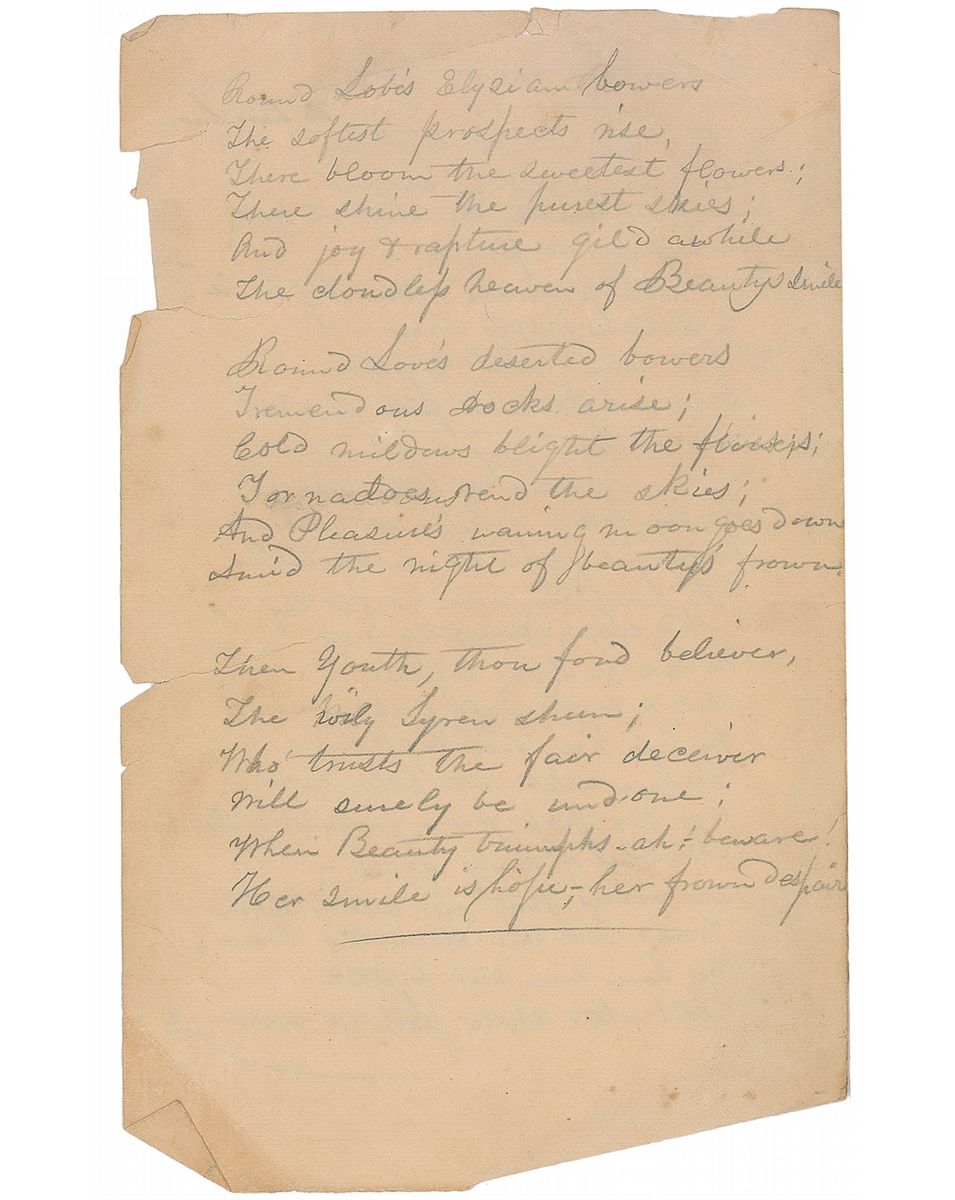 Round Love's Elysian bowers
The softest prospects rise,
There bloom the sweetest flowers;
There shine the purest skies;
And joy & rapture gild awhile
The cloudless heaven of Beauty's smile
Round Love's deserted bowers
Tremendous rocks arise;
Cold mildews blight the flowers;
Tornadoes rend the skies;
And Pleasure's waning moon goes down
Amid the night of beauty's frown.
Then Youth, thou fond believer,
The wily Syren shun;
Who trusts the fair deceiver
Will surely be undone;
When Beauty triumphs - ah! beware!
Her smile is hope, - her frown despair